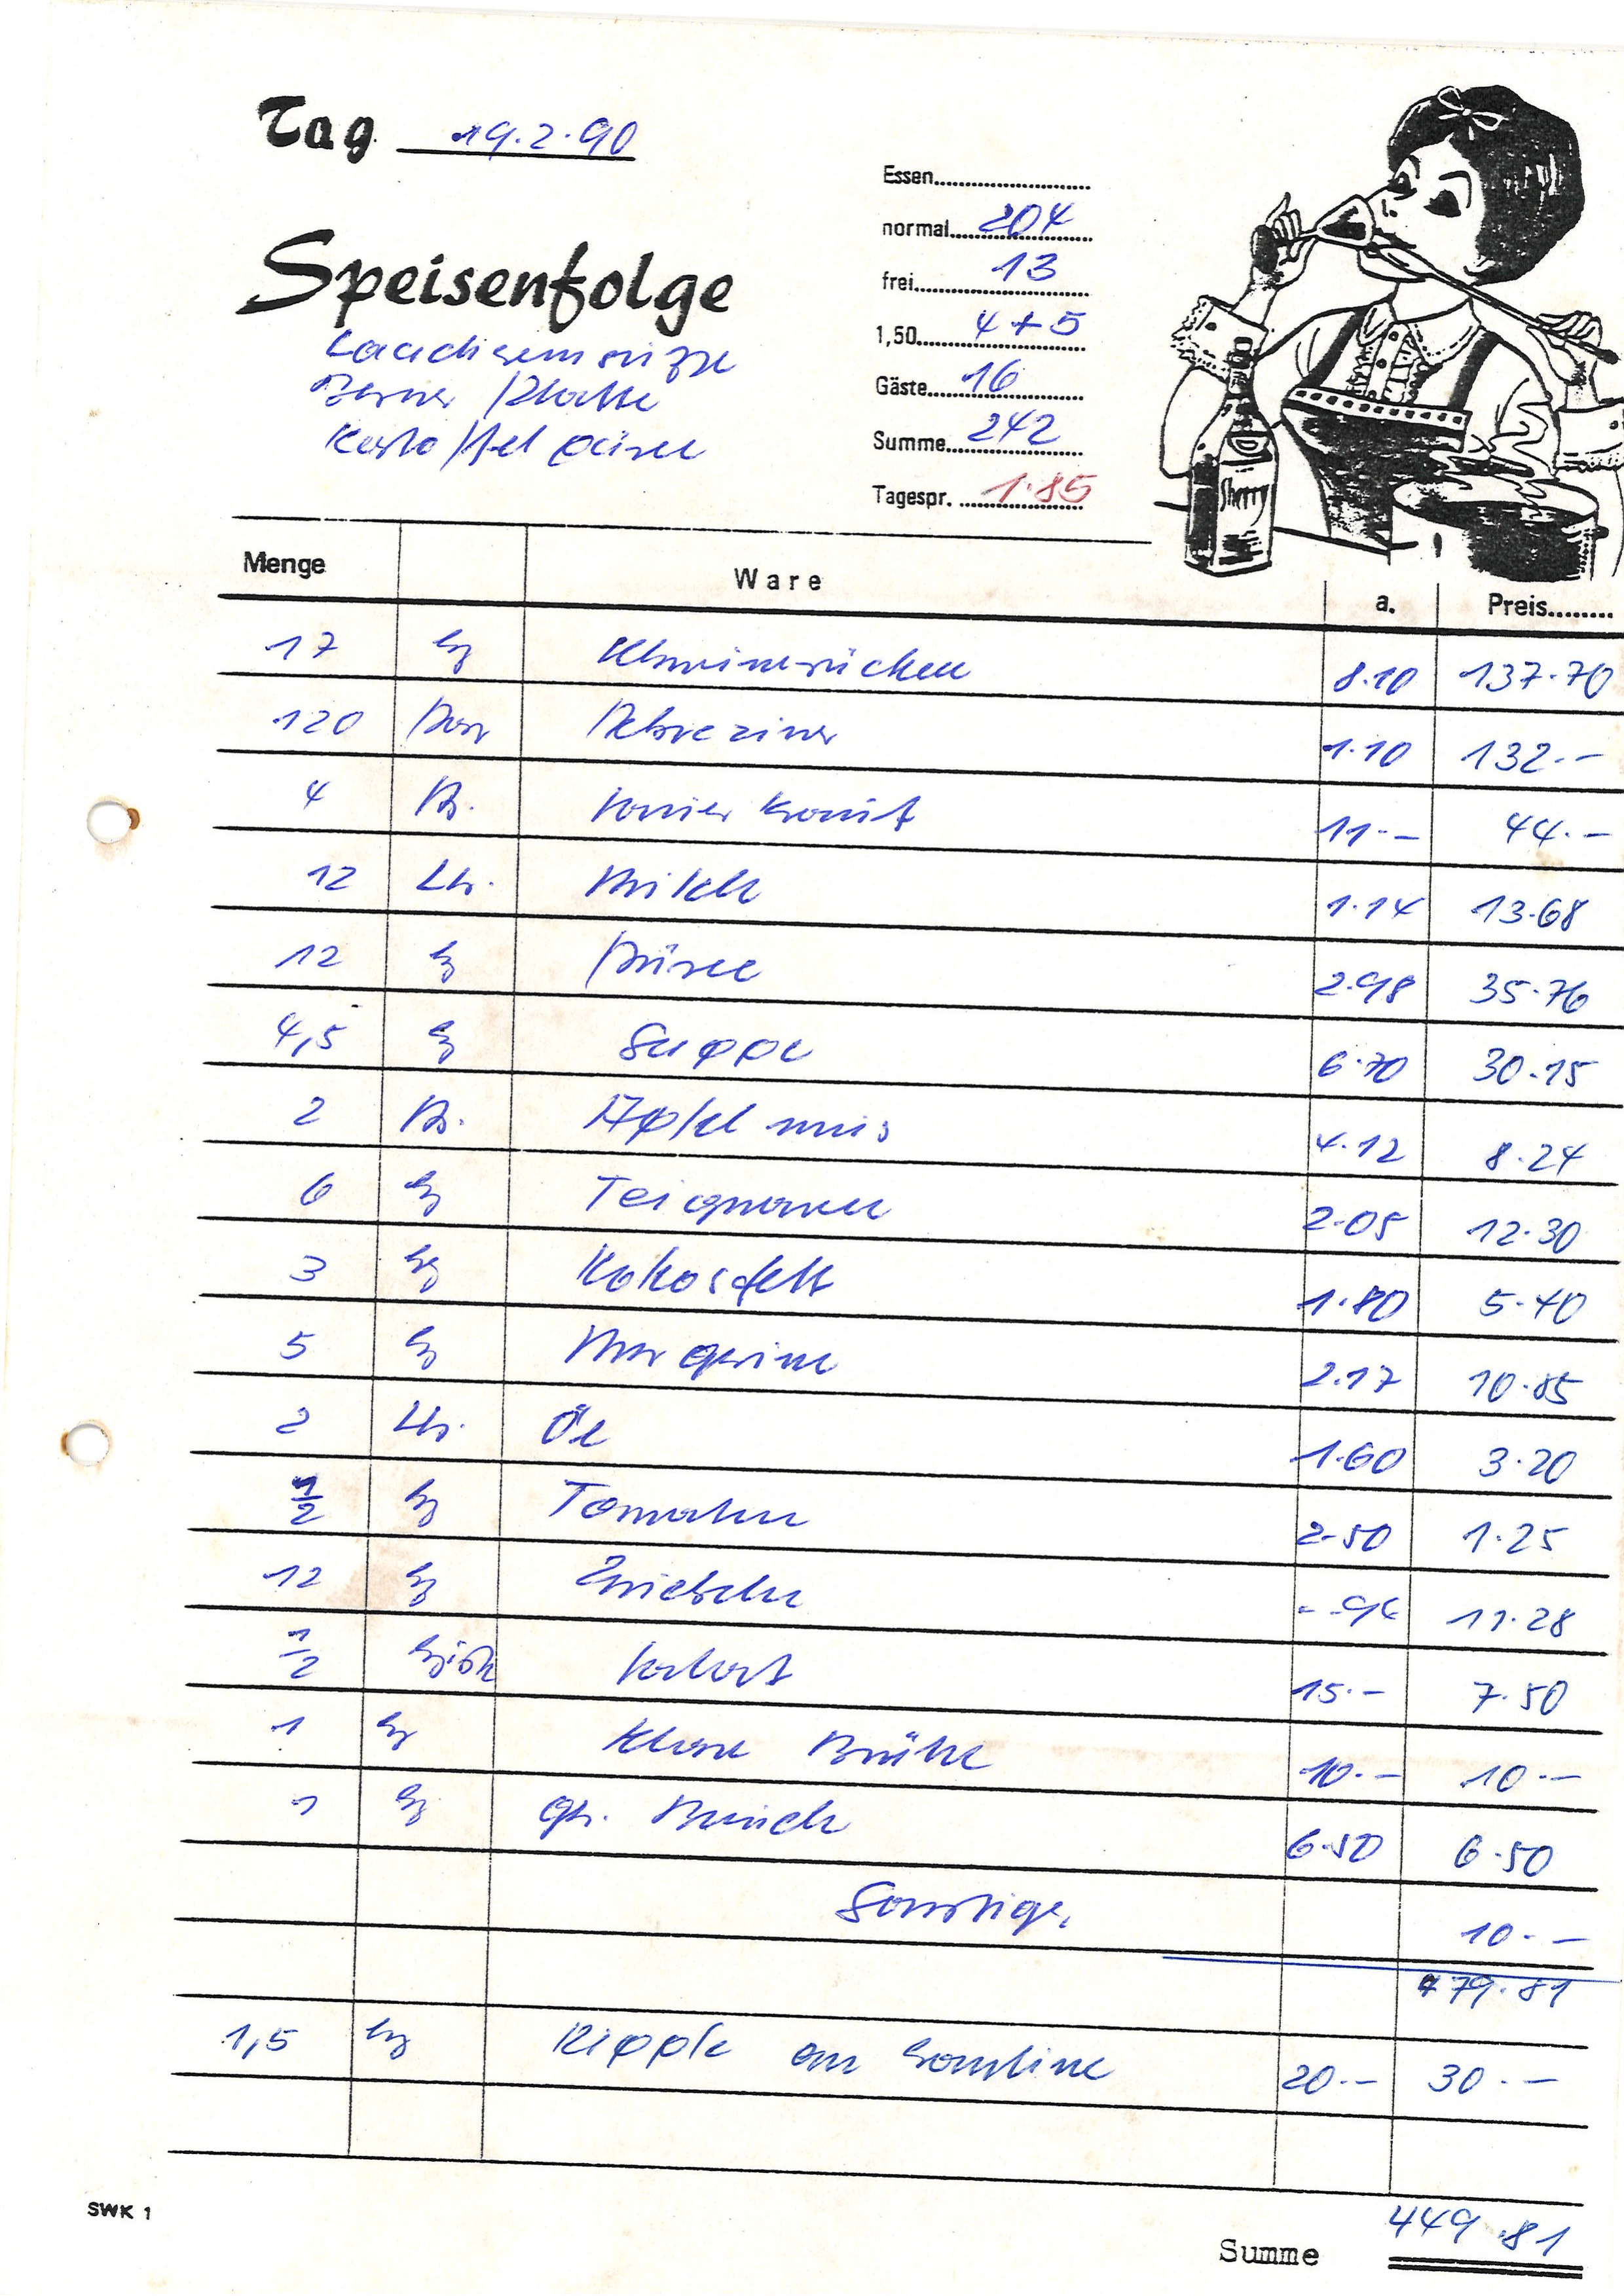 Tag 19.2.90
Speisenfolge
Lauchremsuppe
Berner Platte
Kartoffel püree
Essen
normal 204
frei 13
1,50 4+5
Gäste 16
Summe 242
Tagespr. 1.85
Sherry
Menge Ware a. Preis
17 kg Schweinerücken 8.10 137.70
120 Paar Debreziner 1.10 132.-
4 Ds. Sauerkraut 11.- 44.-
12 Ltr. Milch 1.14 13.68
12 kg Püree 2.98 35.76
4,5 kg Suppe 6.70 30.15
2 Ds. Apfelmus 4.12 8.24
6 kg Teigwaren 2.05 12.30
3 kg Kokosfett 1.80 5.40
5 kg Margarine 2.17 10.85
2 Ltr. Öl 1.60 3.20
1/2 kg Tomaten 2.50 1.25
12 kg Zwiebeln -.94 11.28
1/2 15.- 7.50
1 kg Klare Brühe 10.- 10.-
1 kg 6.50 6.50
Sonstige. 10.-
479.81
1,5 kg Ripple an Kantine 20.- 30.-
SWK 1
Summe 449.81